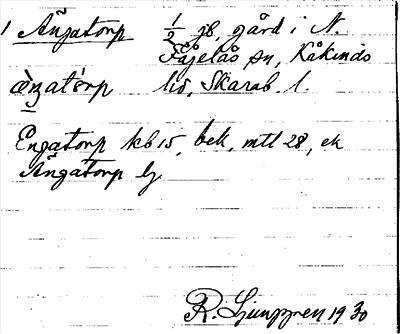 1 Ängatorp 1/2 jb, gård i N.
Fågelås sn, Kåkinds
ä̀ŋatǿrp hd, Skarab. l.
Engatorp kb 15, bek, mtl 28, ek
Ängatorp lj
R. Ljunggren 1930